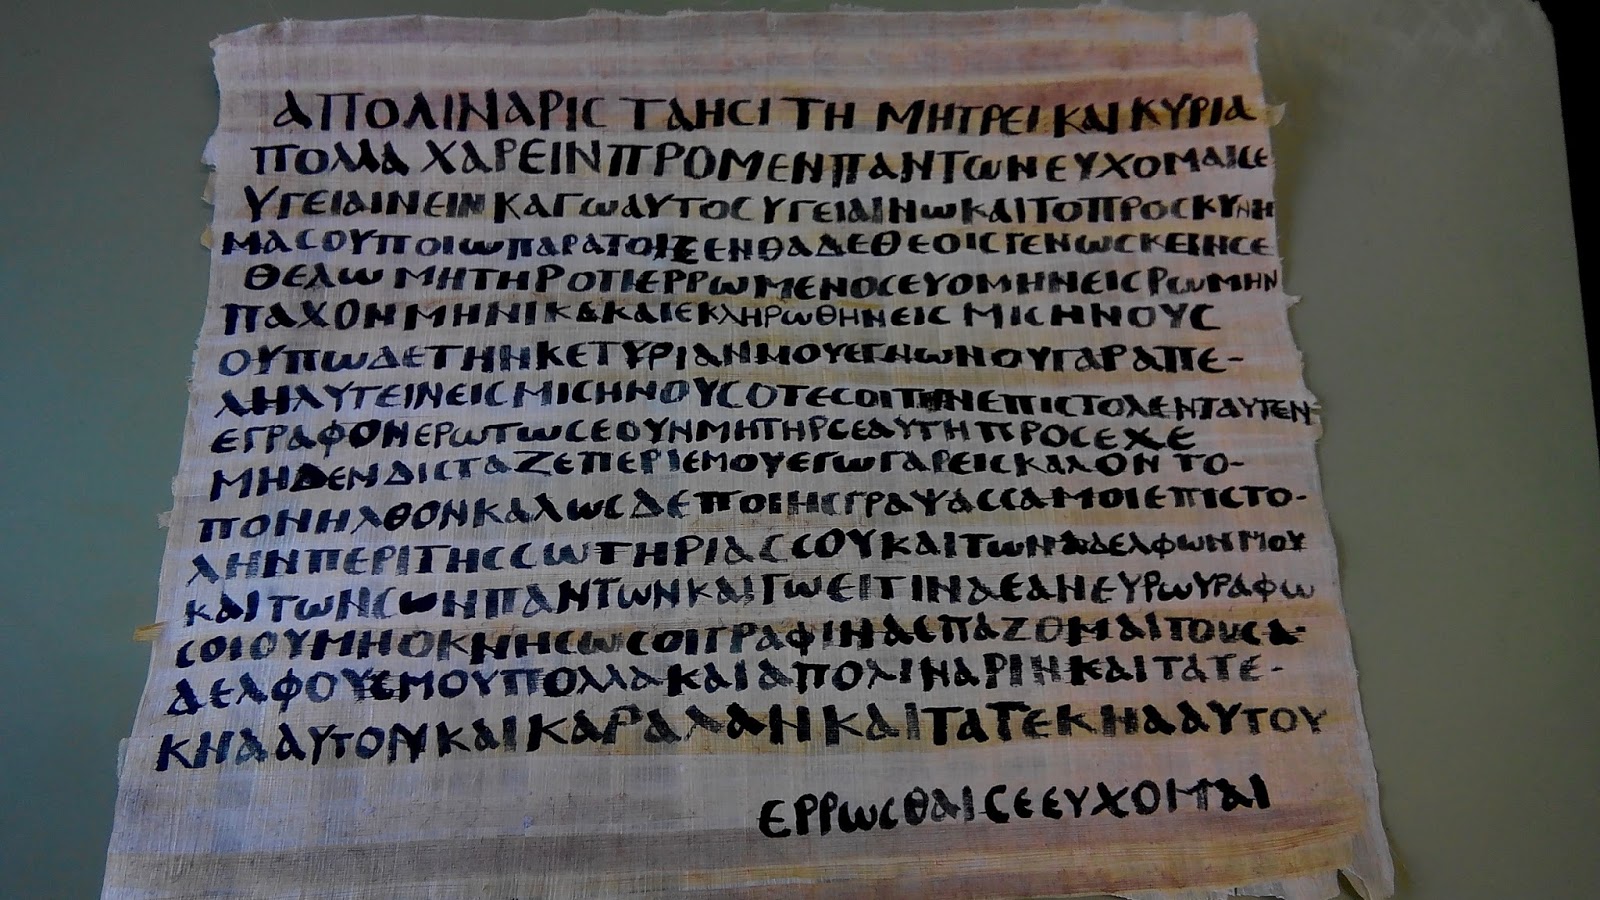 ΑΠΟΛΙΝΑΡΙϹ ΤΑΗϹΙ ΤΗ ΜΗΤΡΕΙ ΚΑΙ ΚΥΡΙΑ
ΠΟΛΛΑ ΧΑΡΕΙΝ ΠΡΟ ΜΕΝ ΠΑΝΤΩΝ ΕΥΧΟΜΑΙ ϹΕ
ΥΓΕΙΑΙΝΕΙΝ ΚΑΓΩ ΑΥΤΟϹ ΥΓΕΙΑΙΝΩ ΚΑΙ ΤΟ ΠΡΟϹΚΥΝΗ
ΜΑ ϹΟΥ ΠΟΙΩ ΠΑΡΑ ΤΟΙϹ ΕΝΘΑΔΕ ΘΕΟΙϹ ΓΕΝΩϹΚΕΙΝ ϹΕ
ΘΕΛΩ ΜΗΤΗΡ ΟΤΙ ΕΡΡΩΜΕΝΟϹ ΕΥΟΜΗΝ ΕΙϹ ΡΩΜΗΝ
ΠΑΧΟΝ ΜΗΝΙ ΚΕ ΚΑΙ ΕΚΛΗΡΩΘΗΝ ΕΙϹ ΜΙϹΗΝΟΥϹ
ΟΥΠΩ ΔΕ ΤΗΝ ΚΕΤΥΡΙΑΝ ΜΟΥ ΕΓΝΩΝ ΟΥ ΓΑΡ ΑΠΕ-
ΛΗΛΥΤΕΙΝ ΕΙϹ ΜΙϹΗΝΟΥϹ ΟΤΕ ϹΟΙ ΤΗΝ ΕΠΙϹΤΟΛΕΝ ΤΑΥΤΕΝ
ΕΓΡΑΦΟΝ ΕΡΩΤΩ ϹΕ ΟΥΝ ΜΗΤΗΡ ϹΕΑΥΤΗ ΠΡΟϹΕΧΕ
ΜΗΔΕΝ ΔΙϹΤΑΖΕ ΠΕΡΙ ΕΜΟΥ ΕΓΩ ΓΑΡ ΕΙϹ ΚΑΛΟΝ ΤΟ-
ΠΟΝ ΗΛΘΟΝ ΚΑΛΩϹ ΔΕ ΠΟΙΗϹ ΓΡΑΨΑϹϹΑ ΜΟΙ ΕΠΙϹΤΟ-
ΛΗΝ ΠΕΡΙ ΤΗϹ ϹΩΤΗΡΙΑϹ ϹΟΥ ΚΑΙ ΤΩΝ ΑΔΕΛΦΩΝ ΜΟΥ
ΚΑΙ ΤΩΝ ϹΩΝ ΠΑΝΤΩΝ ΚΑΙ ΓΩ ΕΙ ΤΙΝΑ ΕΑΝ ΕΥΡΩ ΥΡΑΦΩ
ϹΟΙ ΟΥ ΜΗ ΟΚΝΗϹΩ ϹΟΙ ΓΡΑΦΙΝ ΑϹΠΑΖΟΜΑΙ ΤΟΥϹ Α-
ΔΕΛΦΟΥϹ ΜΟΥ ΠΟΛΛΑ ΚΑΙ ΑΠΟΛΙΝΑΡΙΝ ΚΑΙ ΤΑ ΤΕ-
ΚΝΑ ΑΥΤΟΝ ΚΑΙ ΚΑΡΑΛΑΝ ΚΑΙ ΤΑ ΤΕΚΝΑ ΑΥΤΟΥ
ΕΡΡΩϹΘΑΙ ϹΕ ΕΥΧΟΜΑΙ